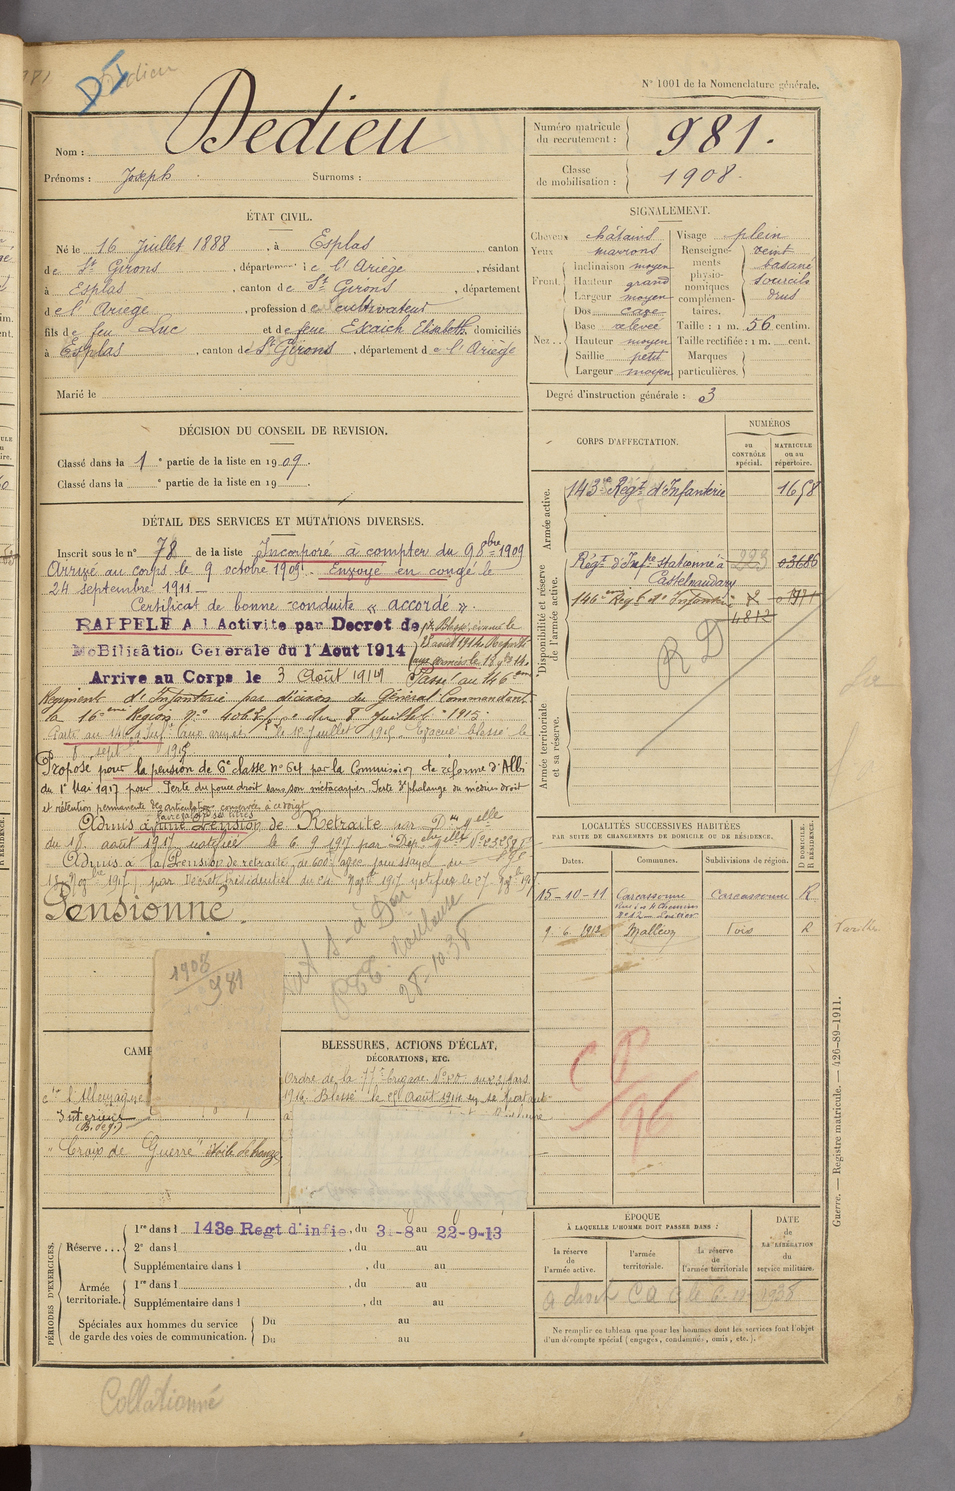 Dedieu
DI
N° 1001 de la Nomenclature générale.
Nom : Dedieu
Prénoms : Joseph . Surnoms :
Numéro matricule du recrutement : 981.
Classe de mobilisation : 1908.
ÉTAT CIVIL.
Né le 16 Juillet 1888, à Esplas canton
de St Girons, département de l'Ariège, résidant
à Esplas, canton de St Girons, département
de l'Ariège, profession de cultivateur
fils de feu Luc et de feue Exaich Elisabeth, domiciliés
à Esplas, canton de St Girons, département de l'Ariège
Marié le
SIGNALEMENT.
Cheveux châtains
Yeux marrons
Front. Inclinaison moyen
Hauteur grand
Largeur moyen
Nez.. Dos cave
Base relevée
Hauteur moyen
Saillie petit
Largeur moyen
Visage plein
Renseignements physionomiques complémentaires. teint basané sourcils drus
Taille : 1 m. 56 centim.
Taille rectifiée : 1 m. cent.
Marques particulières.
Degré d'instruction générale : 3
DÉCISION DU CONSEIL DE REVISION.
Classé dans la 1e partie de la liste en 1909.
Classé dans la e partie de la liste en 19 .
DÉTAIL DES SERVICES ET MUTATIONS DIVERSES.
Inscrit sous le n° 78 de la liste Incorporé à compter du 9 8bre 1909
Arrivé au corps le 9 octobre 1909. Envoyé en congé le
24 septembre 1911.
Certificat de bonne conduite « accordé ».
RAPPELÉ A l Activite par Decret de
MoBilisâtion Generale du 1 Aout 1914
Arrive au Corps le 3 Août 1914 Passé au 146eme
Regiment d'Infanterie par décision du Général Commandant
la 16eme Région n° 4063 du 8 Juillet 1915.
Evacué blessé le
8 sept 1915
Proposé pour la pension de 6e classe n° 64 par la Commission de réforme d'Albi
du 1er Mai 1917 pour Perte du pouce droit sans son métacarpien Perte d'phalange du médius droit
et rétention permanente des articulation conservée à ce doigt
Admis à une Pension de Retraite par Don Melle
du 18 août 1917 notifiée le 6.9.1917
Admis à la Pension de retraite de 600f avec jouissance du
Pensionné
1908
981
Toulouse
28-10-38
CORPS D'AFFECTATION.
NUMÉROS
au CONTRÔLE spécial.
MATRICULE ou au répertoire.
Armée active.
143e Régt d'Infanterie 1658
Disponibilité et réserve de l'armée active.
Régt d'Infie stationné à Castelnaudary 223 03686
146eme Régt d'Infanterie
4812
R D
Armée territoriale et sa réserve.
LOCALITÉS SUCCESSIVES HABITÉES
PAR SUITE DE CHANGEMENTS DE DOMICILE OU DE RÉSIDENCE.
D DOMICILE. R RÉSIDENCE.
Dates. Communes. Subdivisions de région.
15-10-11 Carcassonne Carcassonne R
9-6-1912 Malléon Foix R
CP
96
BLESSURES, ACTIONS D'ÉCLAT,
DÉCORATIONS, ETC.
Ordre de la Brigade
1916. Blessé le août 1914
CAMP
l'Allemagne
Intérieur
"Croix de Guerre" étoile de bronze
PÉRIODES D'EXERCICES.
Réserve ... 1re dans l 143e Regt d'infie, du 3-8 au 22-9-13
2e dans l , du au
Supplémentaire dans l , du au
Armée territoriale. 1re dans l , du au
Supplémentaire dans l , du au
Spéciales aux hommes du service de garde des voies de communication. Du au
Du au
ÉPOQUE
À LAQUELLE L'HOMME DOIT PASSER DANS :
la réserve de l'armée active.
l'armée territoriale.
la réserve de l'armée territoriale
DATE de LA LIBÉRATION du service militaire.
Ne remplir ce tableau que pour les hommes dont les services font l'objet
d'un décompte spécial (engagés, condamnés, omis, etc.).
Guerre. — Registre matricule. — 426-89-1911.
Collationné